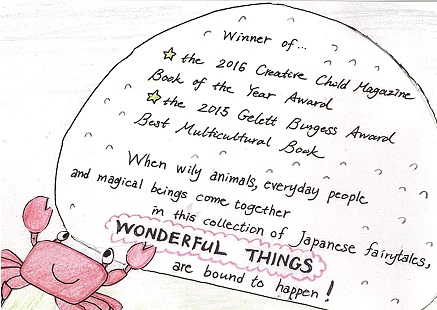 Winner of...
the 2016 Creative Child Magazine
Book of the Year Award
the 2015 Gelett Burgess Award
Best Multicultural Book
When wily animals, everyday people
and magical beings come together
in this collection of Japanese fairytales,
WONDERFUL THINGS
are bound to happen!